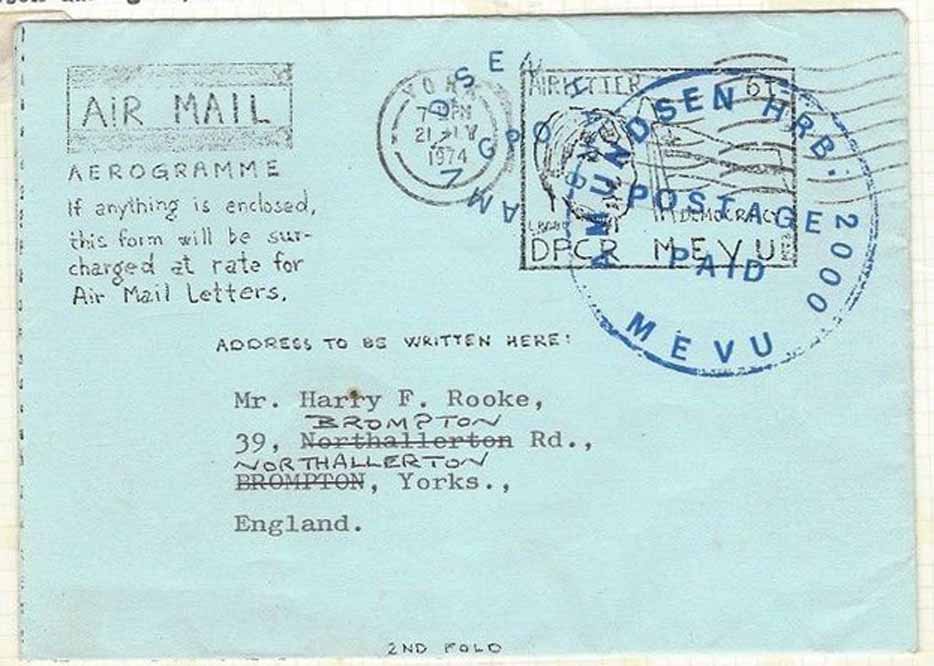 AIR MAIL
AEROGRAMME
If anything is enclosed,
this form will be sur-
charged at rate for
Air Mail Letters.
YORK
7 PM
1974
AIRLETTER 6T
DEMOCRACY
DPCR MEVU
AMUNDSEN HRB. 2000
POSTAGE
PAID
MEVU
ADDRESS TO BE WRITTEN HERE:
Mr. Harry F. Rooke,
BROMPTON
39, Northallerton Rd.,
NORTHALLERTON
BROMPTON, Yorks.,
England.
2ND FOLD